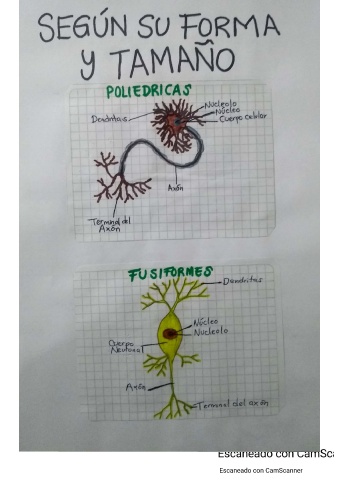 SEGÚN SU FORMA
Y TAMAÑO
POLIEDRICAS
Nucleolo
Núcleo
Dendritas
Cuerpo celular
Axón
Terminal del
Axón
FUSIFORMES
Dendritas
Núcleo
Nucleolo
Cuerpo
Neuronal
Axón
Terminal del axón
Escaneado con CamSca
Escaneado con CamScanner